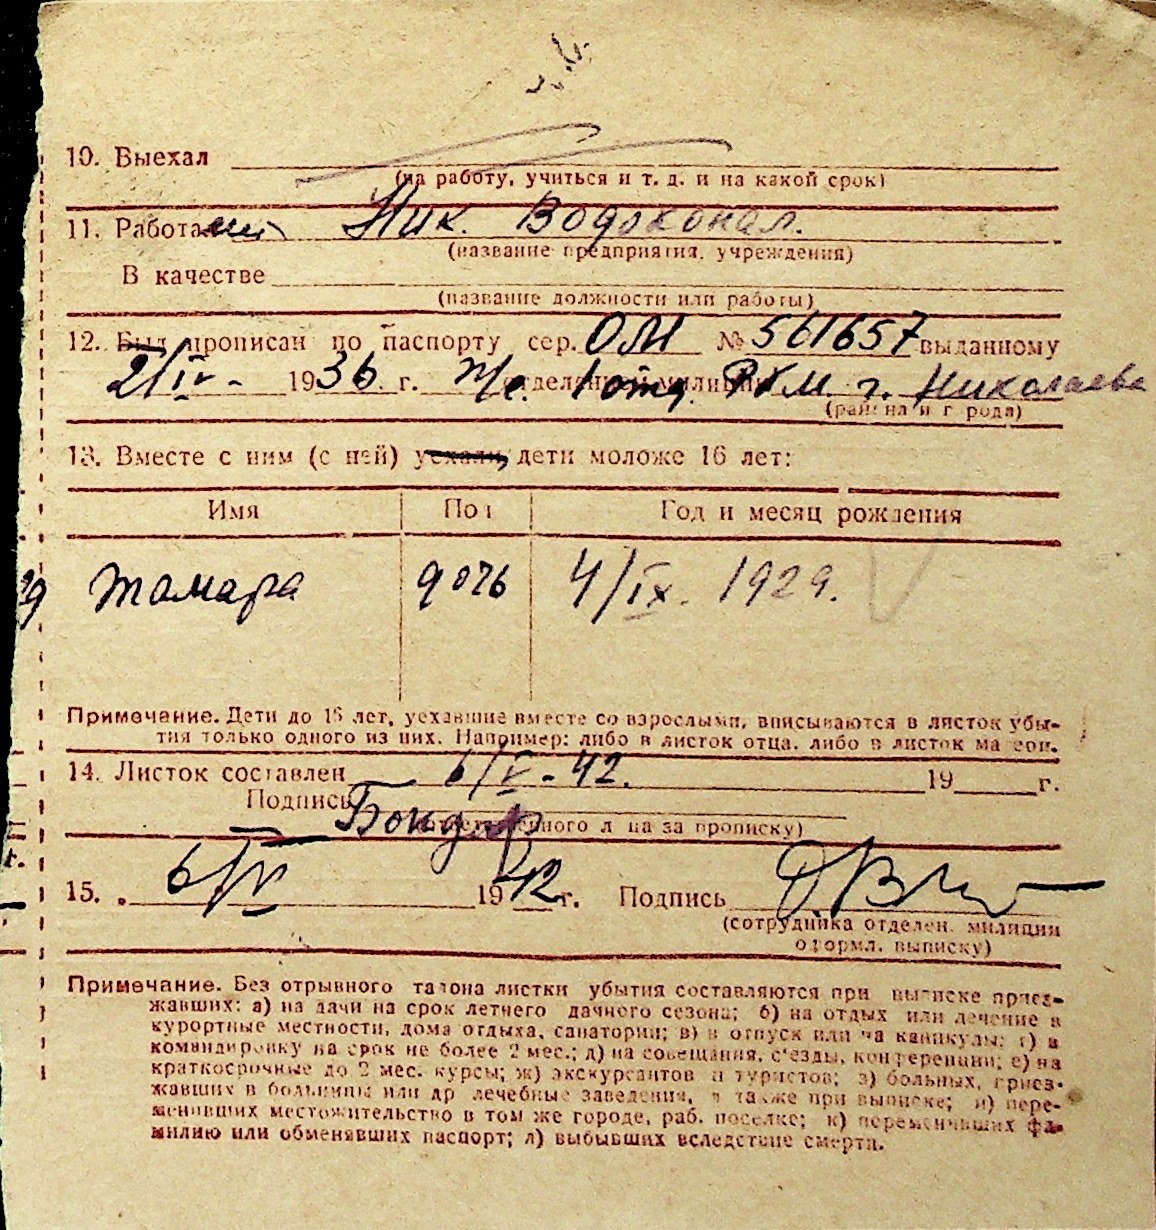 10. Выехал
(на работу, учиться и т. д. и на какой срок)
11. Работа Ник. Водоканал.
(название предприятия, учреждения)
В качестве
(название должности или работы)
12. Был прописан по паспорту сер. ОМ № 561657 выданному
2/IV - 1936 г. отделением милиции РКМ г. Николаева
(района и города)
13. Вместе с ним (с ней) уехали, дети моложе 16 лет:
Имя Пол Год и месяц рождения
Тамара дочь 4/IX. 1929.
Примечание. Дети до 16 лет, уехавшие вместе со взрослыми, вписываются в листок убы-
тия только одного из них. Например: либо в листок отца, либо в листок матери.
14. Листок составлен 6/V - 42. 19 г.
Подпись Бондар
(ответственного лица за прописку)
15. 6/IV 1942 г. Подпись
(сотрудника отделен. милиции
оформл. выписку)
Примечание. Без отрывного талона листки убытия составляются при выписке приез-
жавших: а) на дачи на срок летнего дачного сезона; б) на отдых или лечение в
курортные местности, дома отдыха, санатории; в) в отпуск или на каникулы; г) в
командировку на срок не более 2 мес.; д) на совещания, с'езды, конференции; е) на
краткосрочные до 2 мес. курсы; ж) экскурсантов и туристов; з) больных, приез-
жавших в больницы или др лечебные заведения, а также при выписке; и) пере-
менивших местожительство в том же городе, раб. поселке; к) переменивших фа-
милию или обменявших паспорт; л) выбывших вследствие смерти.